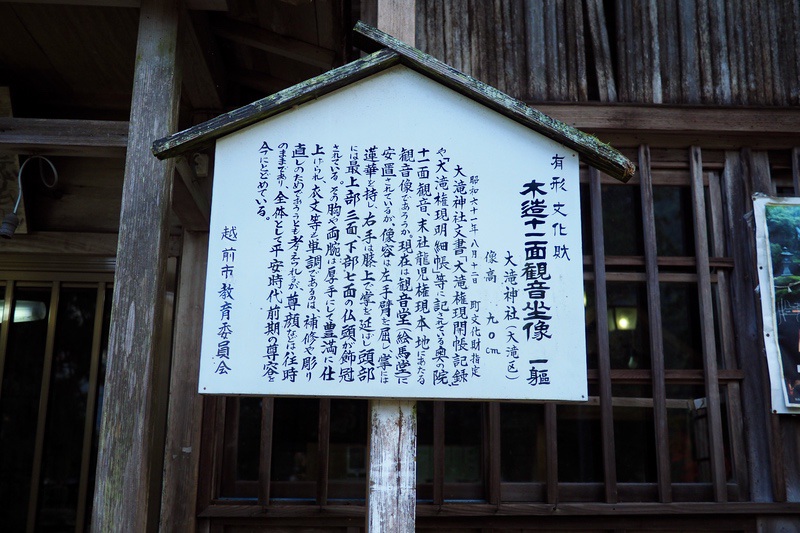 有形文化財
木造十一面観音坐像 一軀
大滝神社(大滝区)
像高 九〇cm
昭和六十一年八月十二日 町文化財指定
大滝神社文書「大滝権現開帳記録」
や「大滝権現明細帳」等に記されている奥の院
十一面観音、末社龍児権現本地にあたる
観音像であろうか。現在は観音堂(絵馬堂)に
安置されているが、像容は左手臂を屈し掌には
蓮華を持し、右手は膝上で掌を延ばし、頭部
には最上部三面、下部七面の仏頭が飾冠
されている。その胸や両腕は厚手にして豊満に仕
上げられ、衣文等が単調であるのは、補修や彫り
直しのためであろうとも考えられるが、尊顔などは往時
のままであり、全体として平安時代前期の尊容を
今にとどめている。
越前市教育委員会